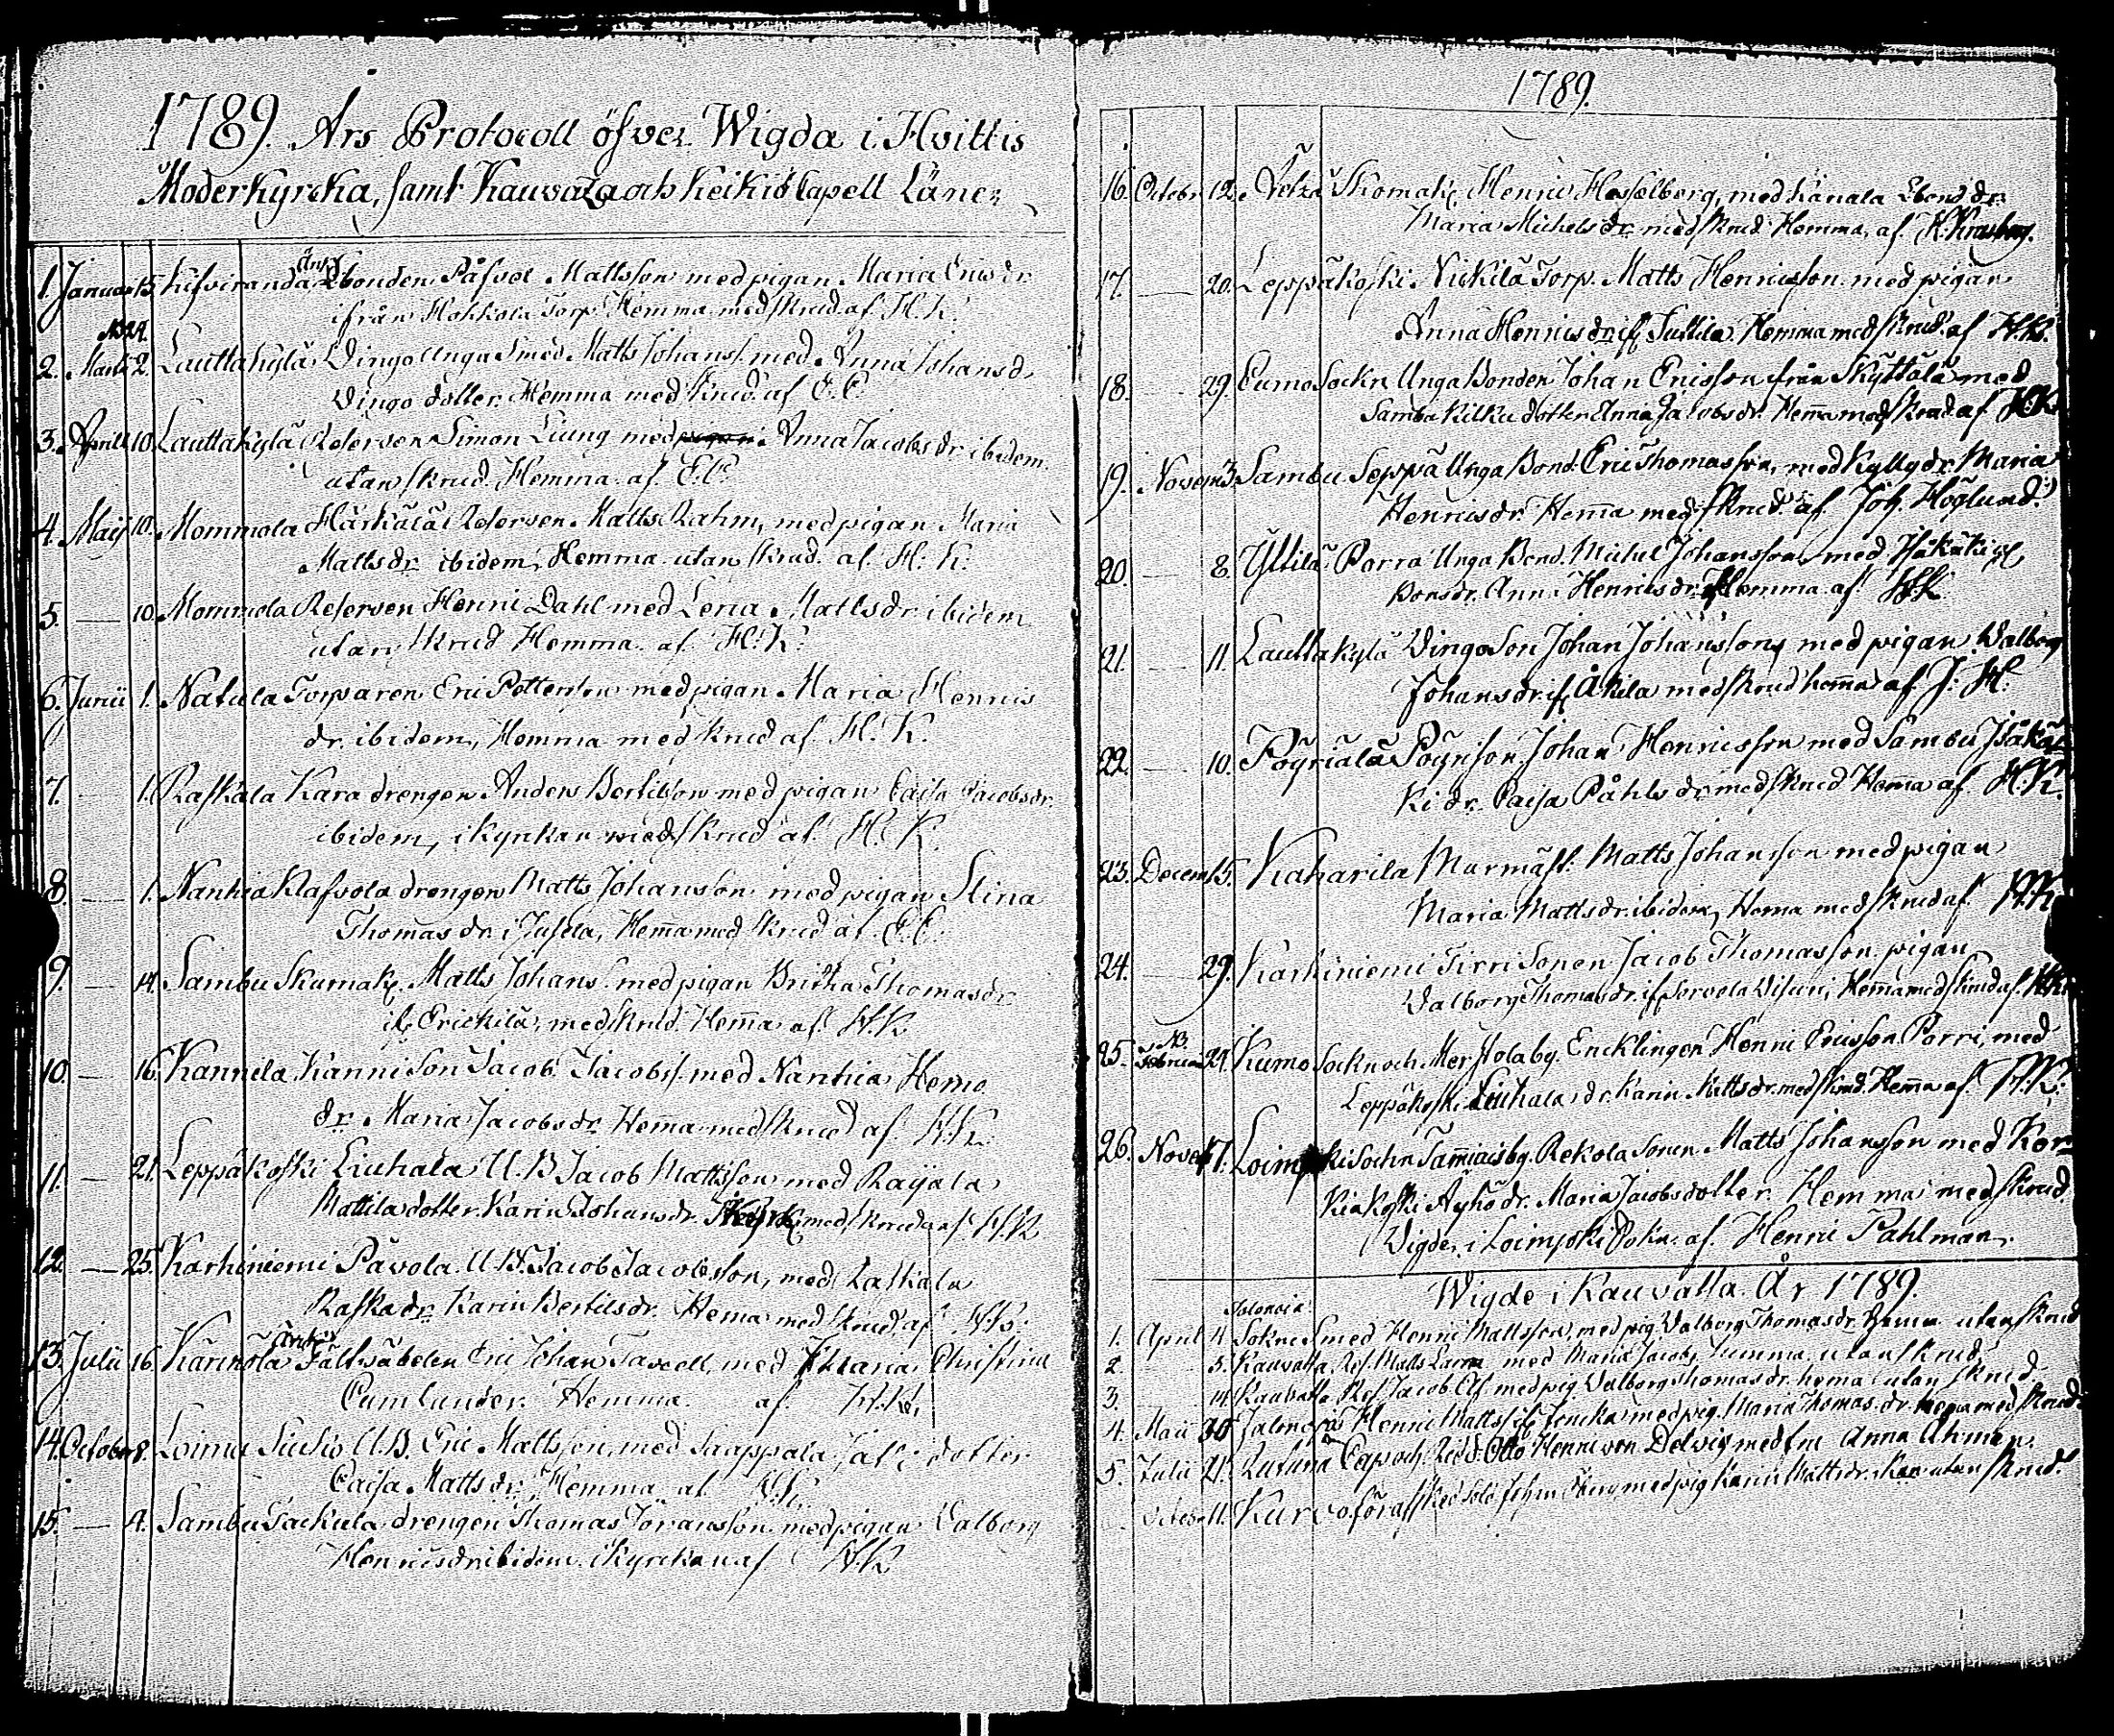 1789. Års Protocoll öfver Wigda i Hvittis
Moderkyrcka, samt Kauvaza och Keikis Capell Läner
1. Januar 15. Kifviranda Enkl. Ebonden Påfvel Mattsson med pigan Maria Erics dr
ifrån Hokkola Torp Hemma med skrud af H.K.
2. Martii 2. Lauttakylä Vingo Unga Smed Matts Johanss. med Anna Johansd.
Vingo dotter Hemma med skrud af E.C.
3. Aprill 10. Lauttakylä Reserven Simon Liung med pigan Anna Jacobs dr ibidem
utan skrud. Hemma. af. E.C.
4. Maij 10. Mommola Härkälä Reserven Matts Rahm, med pigan Maria
Matts dr ibidem, Hemma utan skrud. af. H. K.
5. — 10. Mommola Reserven Henric Dahl med Lena Matts dr ibidem
utan skrud Hemma. af H. K.
6. Junii 1. Natula Torparen Eric Pettersson med pigan Maria Henrics
dr. ibidem, Hemma med skrud af H. K.
7. — 1. Raskala Kara drengen Anders Bertilsson med pigan Caisa Jacobs dr.
ibidem, i kyrkan med skrud af. H. K.
8. — 1. Nanhia Klafvola drengen Matts Johansson med pigan Stina
Thomas dr. i Jusela, Hem̄a med skrud af. E.C.
9. — 14. Sambu Skumak. Matts Johans. med pigan Britha Thomas dr
if. Erickilä, med skrud. Hem̄a af H.K.
10. — 16. Kannila Kanni Son Jacob Jacobss. med Nanhia Hemo
dr. Maria Jacobs dr. Hem̄a med skrud af H.K.
11. — 21. Leppäkoski Liuhala U. B Jacob Mattsson med Raijala
Mattila dotter Karin Johans dr. med skrud af H.K
12. — 25. Karhiniemi Påvola. U. B. Jacob Jacobsson, med Raskala
Raska dr. Karin Bertils dr. Hema med skrud af H.K.
13. Julii 16. Karinola Fältväbelen Eric Johan Tavcell, med Maria Christina
Cumlander. Hemma. af. H.K.
14. October 8. Loima Siuko U.B. Eric Mattsson, med Saappala dotter
Caisa Matts dr. Hemma af H.K.
15. — 4. Sambu Tackula drengen Thomas Jöransson med pigan Valborg
Henrics dr ibidem i kyrckan af H.K
1789.
16. Octobr 12. Skomak. Henric Hesselberg, med Känala Ebond dr.
Maria Michels dr. med skrud Hemma, af
17. — 20. Leppäkoski Nickilä Torp. Matts Henricsson med pigan
Anna Henrics dr if. Suttila Hemma med skrud. af H.K.
18. — 29. Eumo Sockn Unga Bonden Johan Ericsson från Skyttälä med
Samba Kilku dotter Anna Jacobs dr. Hem̄a med skrud. af H.K
19. Novem 3. Sambu Seppä Unga Bond. Eric Thomasson, med Kylly dr. Maria
Henrics dr. Hem̄a med skrud. af Joh. Höglund.
20. — 8. Yttilä Porra Unga Bond. Michel Johansson med
Bonsdr. Ann. Henrics dr. Hemma af. H.K
21. — 11. Lauttakylä Vingo Son Johan Johansson med pigan Walborg
Johans dr. if. Åkila med skrud hem̄a af J. H.
22. — 10. Pöyriälä Pöyri son Johan Henricsson med Sambu Isäkäs
ki dr. Caisa Påhls dr. med skrud Hema af. H.K.
23. Decem 15. Kaharila Murmäst. Matts Johansson med pigan
Maria Matts dr. ibidem, Hema med skrud af H.K
24. — 29. Karhiniemi Tirri Sonen Jacob Thomasson pigan
Valborg Thomas dr. if. Sorvola Visuri, Hem̄a med skrud af. H.K
25. NB. Februa 24. Kumo Sockn och Merstola by. Encklingen Henric Ericsson Porri, med
Leppäkoski Liuhala dr. Karin Matts dr. med skrud. Hem̄a af. H.K.
26. Novem 17. Loimjoki Sockn Tam̄iais by. Rekola Sonen Matts Johansson med Kor-
kiakoski Äyhö dr. Maria Jacobs dotter. Hemma med skrud.
Vigde i Loimjoki Sokn. af. Henric Pahlman.
Wigde i Kauvatta År 1789.
1. April 4 Sokne Smed Henric Mattsson, med pig. Valborg Thomas dr. hema utan skrud
2. — 5. Kauvatta Res. Matts Lann med Maria Jacobs hemma utan skrud.
3. — 14. Kauvatta Res. Jacob Alf med pig. Valborg Thomas dr. hema utan skrud.
4. Maii 30 Henric Matts med pig. Maria Thomas dr. hema med skrud.
5. Julii 21. Cap och Rid. Otto Henric von Delwig med fru Anna Uhman.
Octob. 11. med pig Karin Matts dr. utan skrud.